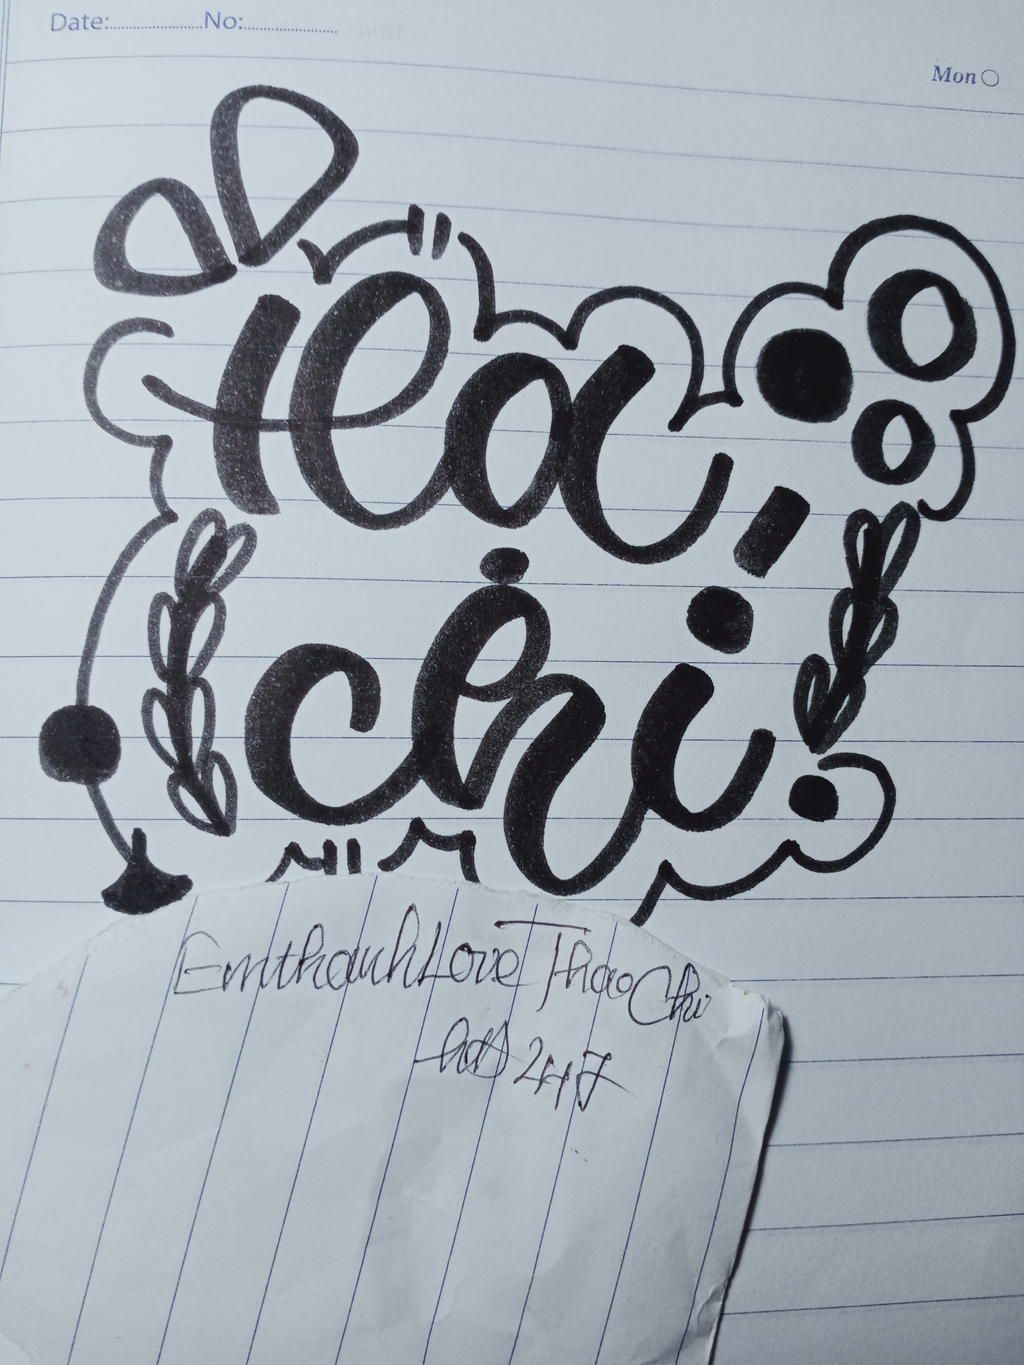 Date: No:
Mon
Ha
chi
EmthanhLove Thao Chi
hdt 247